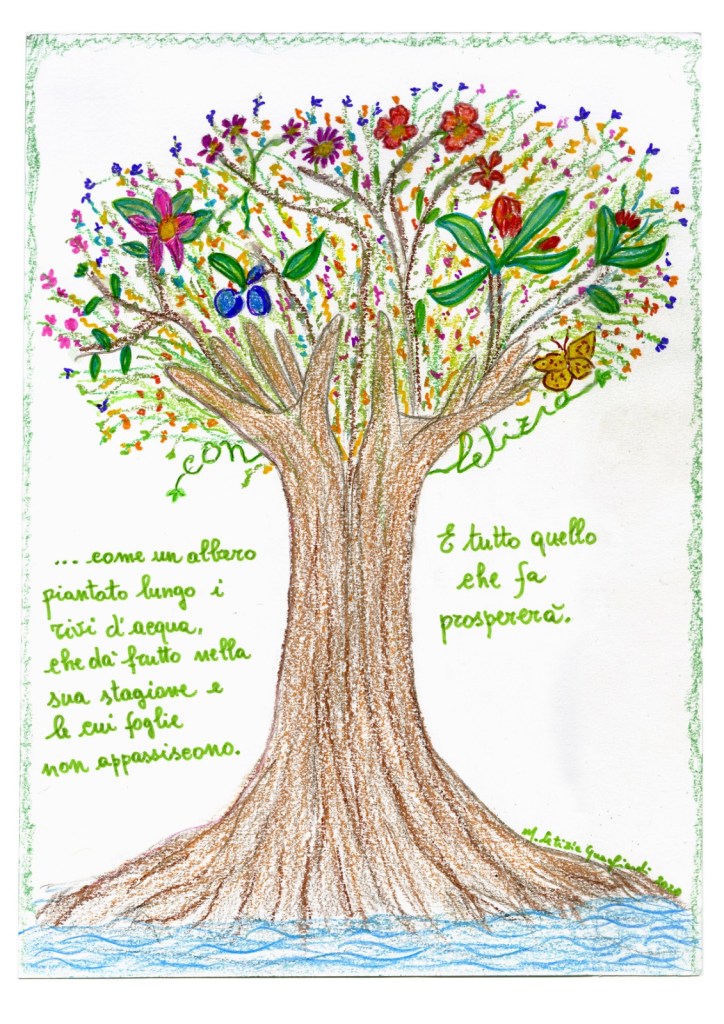 con letizia
... come un albero
piantato lungo i
rivi d'acqua,
che dà frutto nella
sua stagione e
le cui foglie
non appassiscono.
E tutto quello
che fa
prospererà.
M. Letizia